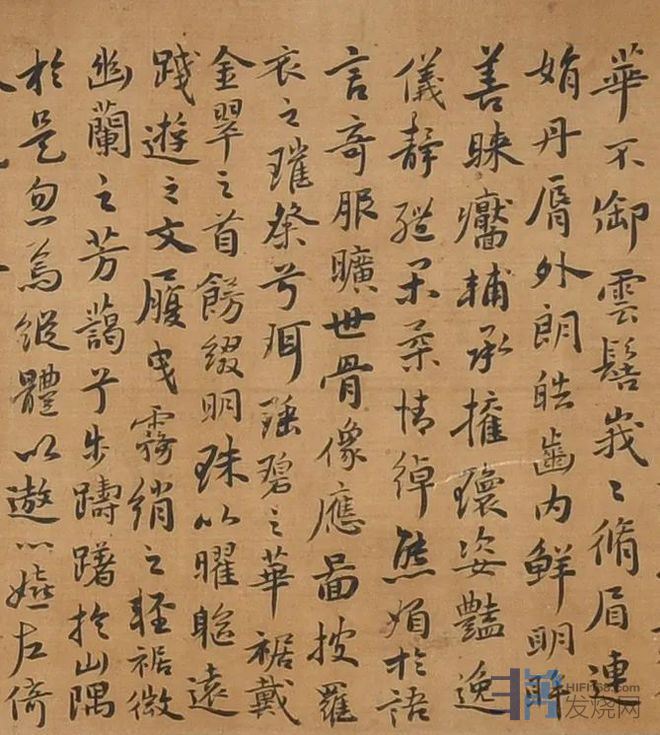 華不御雲髻峩〻脩眉連
娟丹脣外朗皓齒内鮮明眸
善睞靨輔承權瓌姿豔逸
儀靜體闲柔情綽態媚於語
言奇服曠世骨像應圖披羅
衣之璀粲兮珥瑤碧之華裾戴
金翠之首餝綴明珠以曜軀遠
踐遊之文履曳霧綃之輕裾微
幽蘭之芳藹兮步躊躇於山隅
於是忽焉縱體以遨以嬉左倚
HIFI168.com
发烧网